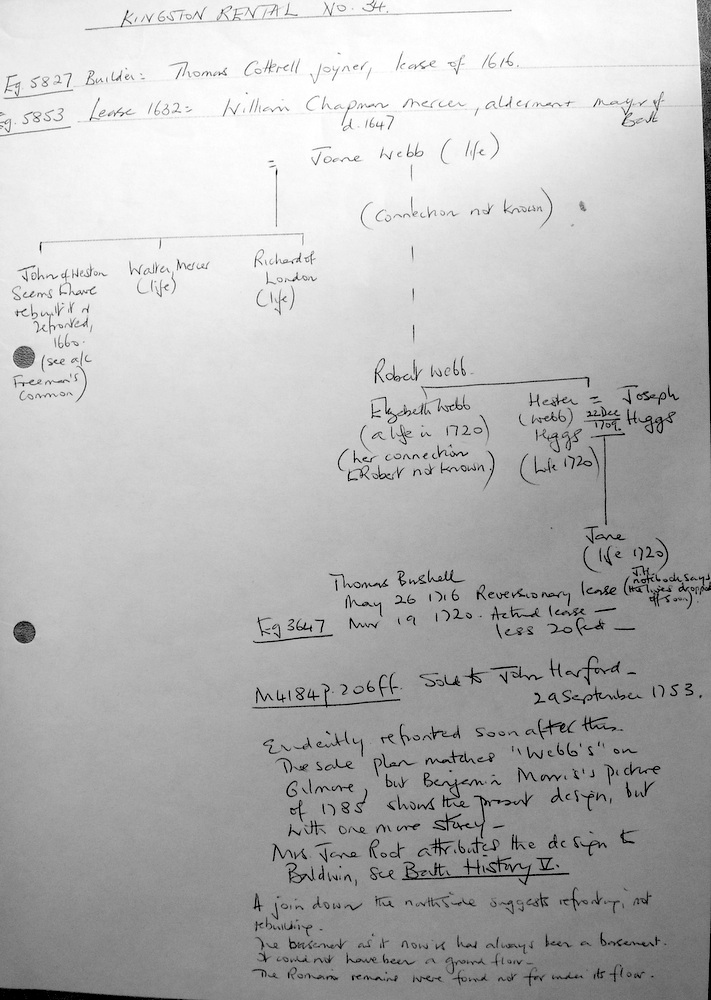 KINGSTON RENTAL NO. 34.
Eg. 5827 Builder = Thomas Cotterell joyner, lease of 1616.
Eg. 5853 Lease 1632 = William Chapman mercer, alderman + mayor of
d. 1647 Bath
= Joane Webb (life)
(Connection not known)
John of Weston
Seems to have
rebuilt it &
refronted,
1660.
(see a/c
Freeman's
Common)
Walter, Mercer
(life)
Richard of
London
(life)
Robert Webb.
Elizabeth Webb
(a life in 1720)
(her connection
to Robert not known.)
Hester = Joseph
(Webb) 22 Dec 1709. Higgs
Higgs
(life 1720)
Jane
(life 1720)
Thomas Bushell
May 26 1716 Reversionary lease (J.H. notebook says
the lives dropped
off soon).
Eg 3647 Mar 19 1720. Actual lease —
less 20 feet —
M4184 p. 206ff. Sold to John Harford —
29 September 1753.
Evidently refronted soon after this.
The sale plan matches "Webb's" on
Gilmore, but Benjamin Morris's picture
of 1785 shows the present design, but
with one more storey —
Mrs. Jane Root attributes the design to
Baldwin, see Bath History V.
A join down the north side suggests refronting, not
rebuilding.
The basement as it now is has always been a basement.
It could not have been a ground floor —
The Roman remains were found not far under its floor.